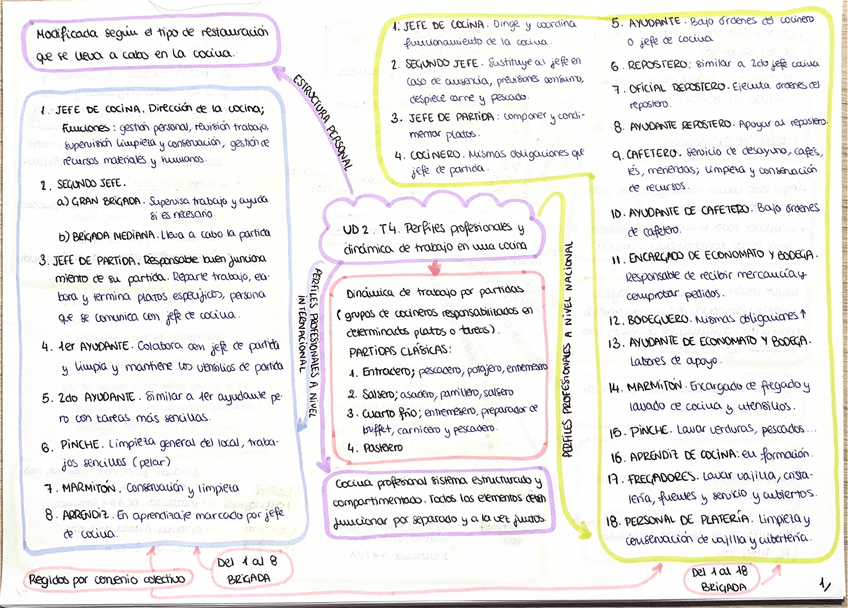 Modificada según el tipo de restauración
que se lleva a cabo en la cocina.
ESTRUCTURA PERSONAL
1. JEFE DE COCINA. Dirección de la cocina;
Funciones: gestión personal, revisión trabajo,
supervisión limpieza y conservación, gestión de
recursos materiales y humanos.
2. SEGUNDO JEFE.
a) GRAN BRIGADA. Supervisa trabajo y ayuda
si es necesario
b) BRIGADA MEDIANA. Lleva a cabo la partida
3. JEFE DE PARTIDA. Responsable buen funciona
miento de su partida. Reparte trabajo, ela-
bora y termina platos específicos, persona
que se comunica con jefe de cocina.
4. 1er AYUDANTE. Colabora con jefe de partida
y limpia y mantiene los utensilios de partida
5. 2do AYUDANTE. Similar a 1er ayudante pe-
ro con tareas más sencillas.
6. PINCHE. Limpieza general del local, traba-
jos sencillos (pelar)
7. MARMITÓN. Conservación y limpieza
8. APRENDIZ. En aprendizaje marcado por jefe
de cocina.
Regidos por convenio colectivo
Del 1 al 8
BRIGADA
UD 2. T4. Perfiles profesionales y
dinámica de trabajo en una cocina
PERFILES PROFESIONALES A NIVEL
INTERNACIONAL
Dinámica de trabajo por partidas
(grupos de cocineros responsabilizados en
determinados platos o tareas).
PARTIDAS CLÁSICAS:
1. Entradero; pescadero, potajero, entremesero
2. Salsero; asador, parrillero, salsero
3. Cuarto frío; entremesero, preparador de
buffet, carnicero y pescadero.
4. Pastelero
Cocina profesional sistema estructurado y
compartimentado. Todos los elementos deben
funcionar por separado y a la vez juntos.
PERFILES PROFESIONALES A NIVEL NACIONAL
1. JEFE DE COCINA. Dirige y coordina
funcionamiento de la cocina.
2. SEGUNDO JEFE. Sustituye al jefe en
caso de ausencia, previsiones consumo,
despiece carne y pescado.
3. JEFE DE PARTIDA: componer y condi-
mentar platos.
4. COCINERO. Mismas obligaciones que
jefe de partida.
5. AYUDANTE. Bajo órdenes del cocinero
o jefe de cocina
6. REPOSTERO: similar a 2do jefe cocina
7. OFICIAL REPOSTERO. Ejecuta órdenes del
repostero.
8. AYUDANTE REPOSTERO. Apoyar al repostero.
9. CAFETERO. Servicio de desayuno, cafés,
tés, meriendas; limpieza y conservación
de recursos.
10. AYUDANTE DE CAFETERO. Bajo órdenes
de cafetero.
11. ENCARGADO DE ECONOMATO Y BODEGA.
Responsable de recibir mercancía y
comprobar pedidos.
12. BODEGUERO. Mismas obligaciones ↑
13. AYUDANTE DE ECONOMATO Y BODEGA.
Labores de apoyo.
14. MARMITÓN. Encargado de fregado y
lavado de cocina y utensilios.
15. PINCHE. Lavar verduras, pescados...
16. APRENDIZ DE COCINA: en formación.
17. FREGADORES. Lavar vajilla, crista-
lería, fuentes y servicio y cubiertos.
18. PERSONAL DE PLATERÍA. Limpieza y
conservación de vajilla y cubertería.
Del 1 al 18
BRIGADA
1/